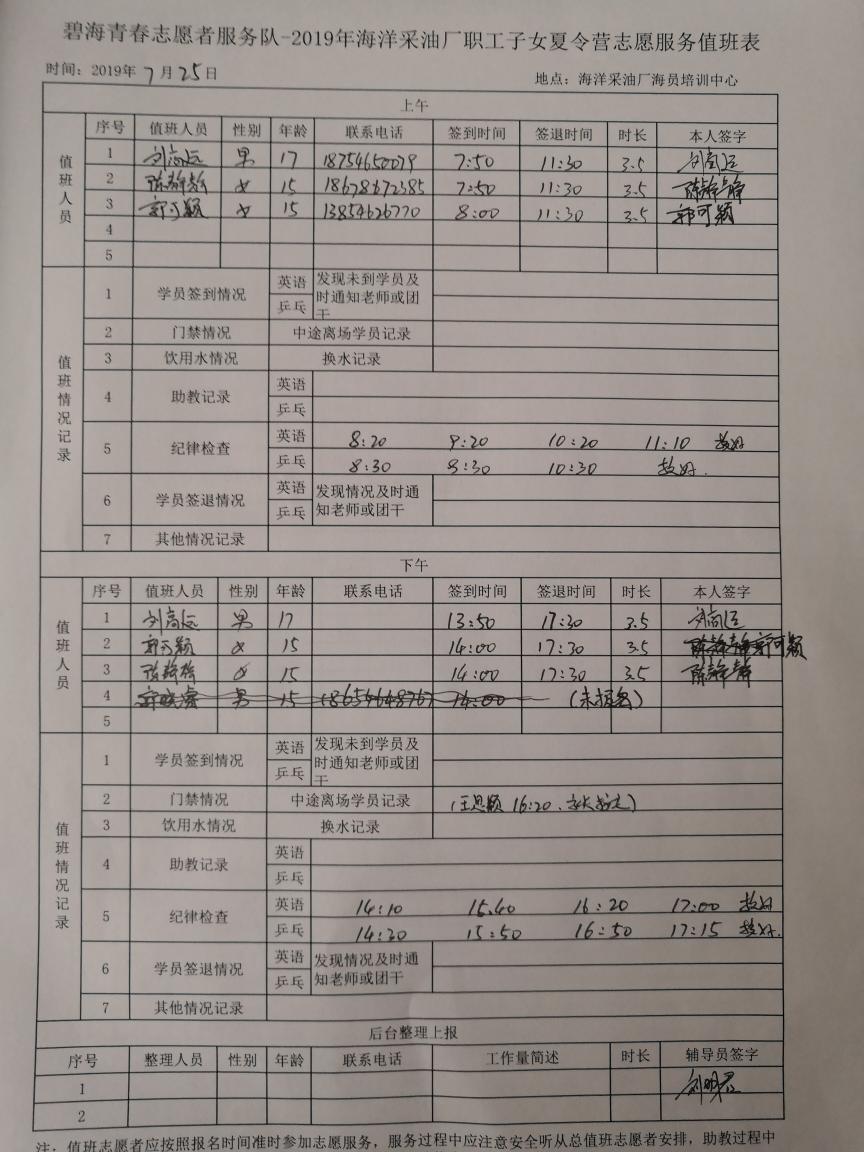 碧海青春志愿者服务队-2019年海洋采油厂职工子女夏令营志愿服务值班表
时间：2019年 7月25日 地点：海洋采油厂海员培训中心
上午
值班人员
序号 值班人员 性别 年龄 联系电话 签到时间 签退时间 时长 本人签字
1 刘高远 男 17 18754650079 7:50 11:30 3.5 刘高远
2 陈静静 女 15 18678672385 7:50 11:30 3.5 陈静静
3 郭可颖 女 15 13854626770 8:00 11:30 3.5 郭可颖
4
5
值班情况记录
1 学员签到情况 英语 发现未到学员及时通知老师或团干
乒乓
2 门禁情况 中途离场学员记录
3 饮用水情况 换水记录
4 助教记录 英语
乒乓
5 纪律检查 英语 8:20 9:20 10:20 11:10 较好
乒乓 8:30 9:30 10:30 较好.
6 学员签退情况 英语 发现情况及时通知老师或团干
乒乓
7 其他情况记录
下午
值班人员
序号 值班人员 性别 年龄 联系电话 签到时间 签退时间 时长 本人签字
1 刘高远 男 17 13:50 17:30 3.5 刘高远
2 郭可颖 女 15 14:00 17:30 3.5 陈静静 郭可颖
3 陈静静 女 15 14:00 17:30 3.5 陈静静
4 男 15 18654648767 14:00 (未报名)
5
值班情况记录
1 学员签到情况 英语 发现未到学员及时通知老师或团干
乒乓
2 门禁情况 中途离场学员记录 (王思颖 16:20、家长接走)
3 饮用水情况 换水记录
4 助教记录 英语
乒乓
5 纪律检查 英语 14:10 15:40 16:20 17:00 较好
乒乓 14:20 15:50 16:50 17:15 较好.
6 学员签退情况 英语 发现情况及时通知老师或团干
乒乓
7 其他情况记录
后台整理上报
序号 整理人员 性别 年龄 联系电话 工作量简述 时长 辅导员签字
1
2
注：值班志愿者应按照报名时间准时参加志愿服务，服务过程中应注意安全听从总值班志愿者安排，助教过程中